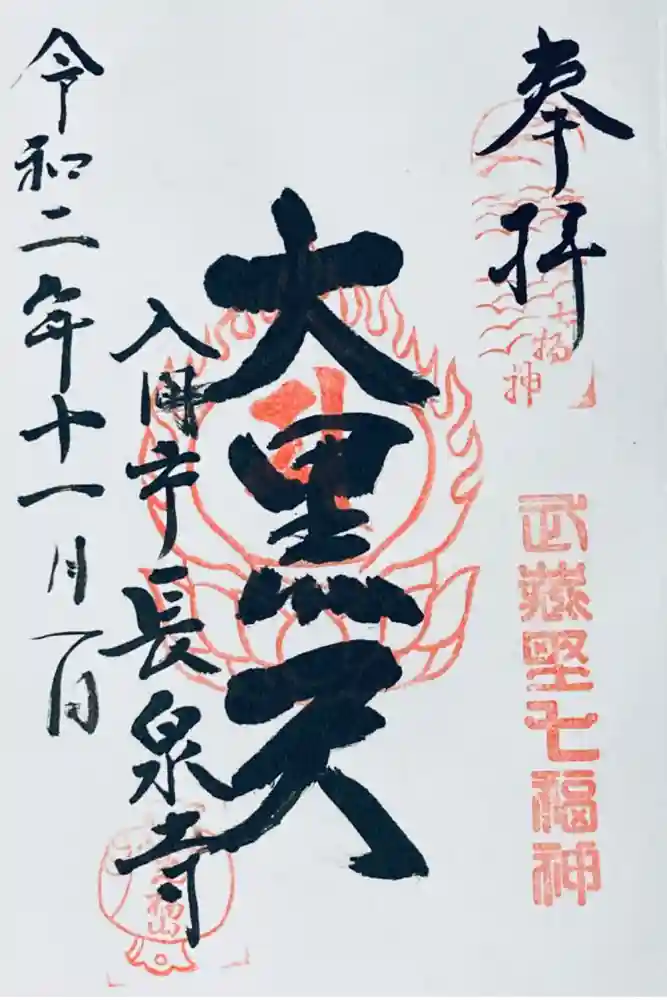 奉拝
七福神
武蔵野七福神
大黒天
入間市長泉寺
令和二年十一月一日